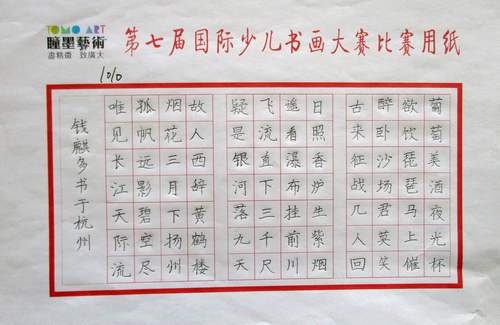 TOMO ART
瞳墨藝術
盡精微 致廣大
第七届国际少儿书画大赛比赛用纸
葡萄美酒夜光杯
欲饮琵琶马上催
醉卧沙场君莫笑
古来征战几人回
日照香炉生紫烟
遥看瀑布挂前川
飞流直下三千尺
疑是银河落九天
故人西辞黄鹤楼
烟花三月下扬州
孤帆远影碧空尽
唯见长江天际流
钱麒多书于杭州